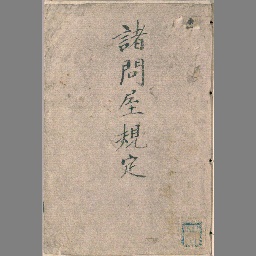 諸問屋規定